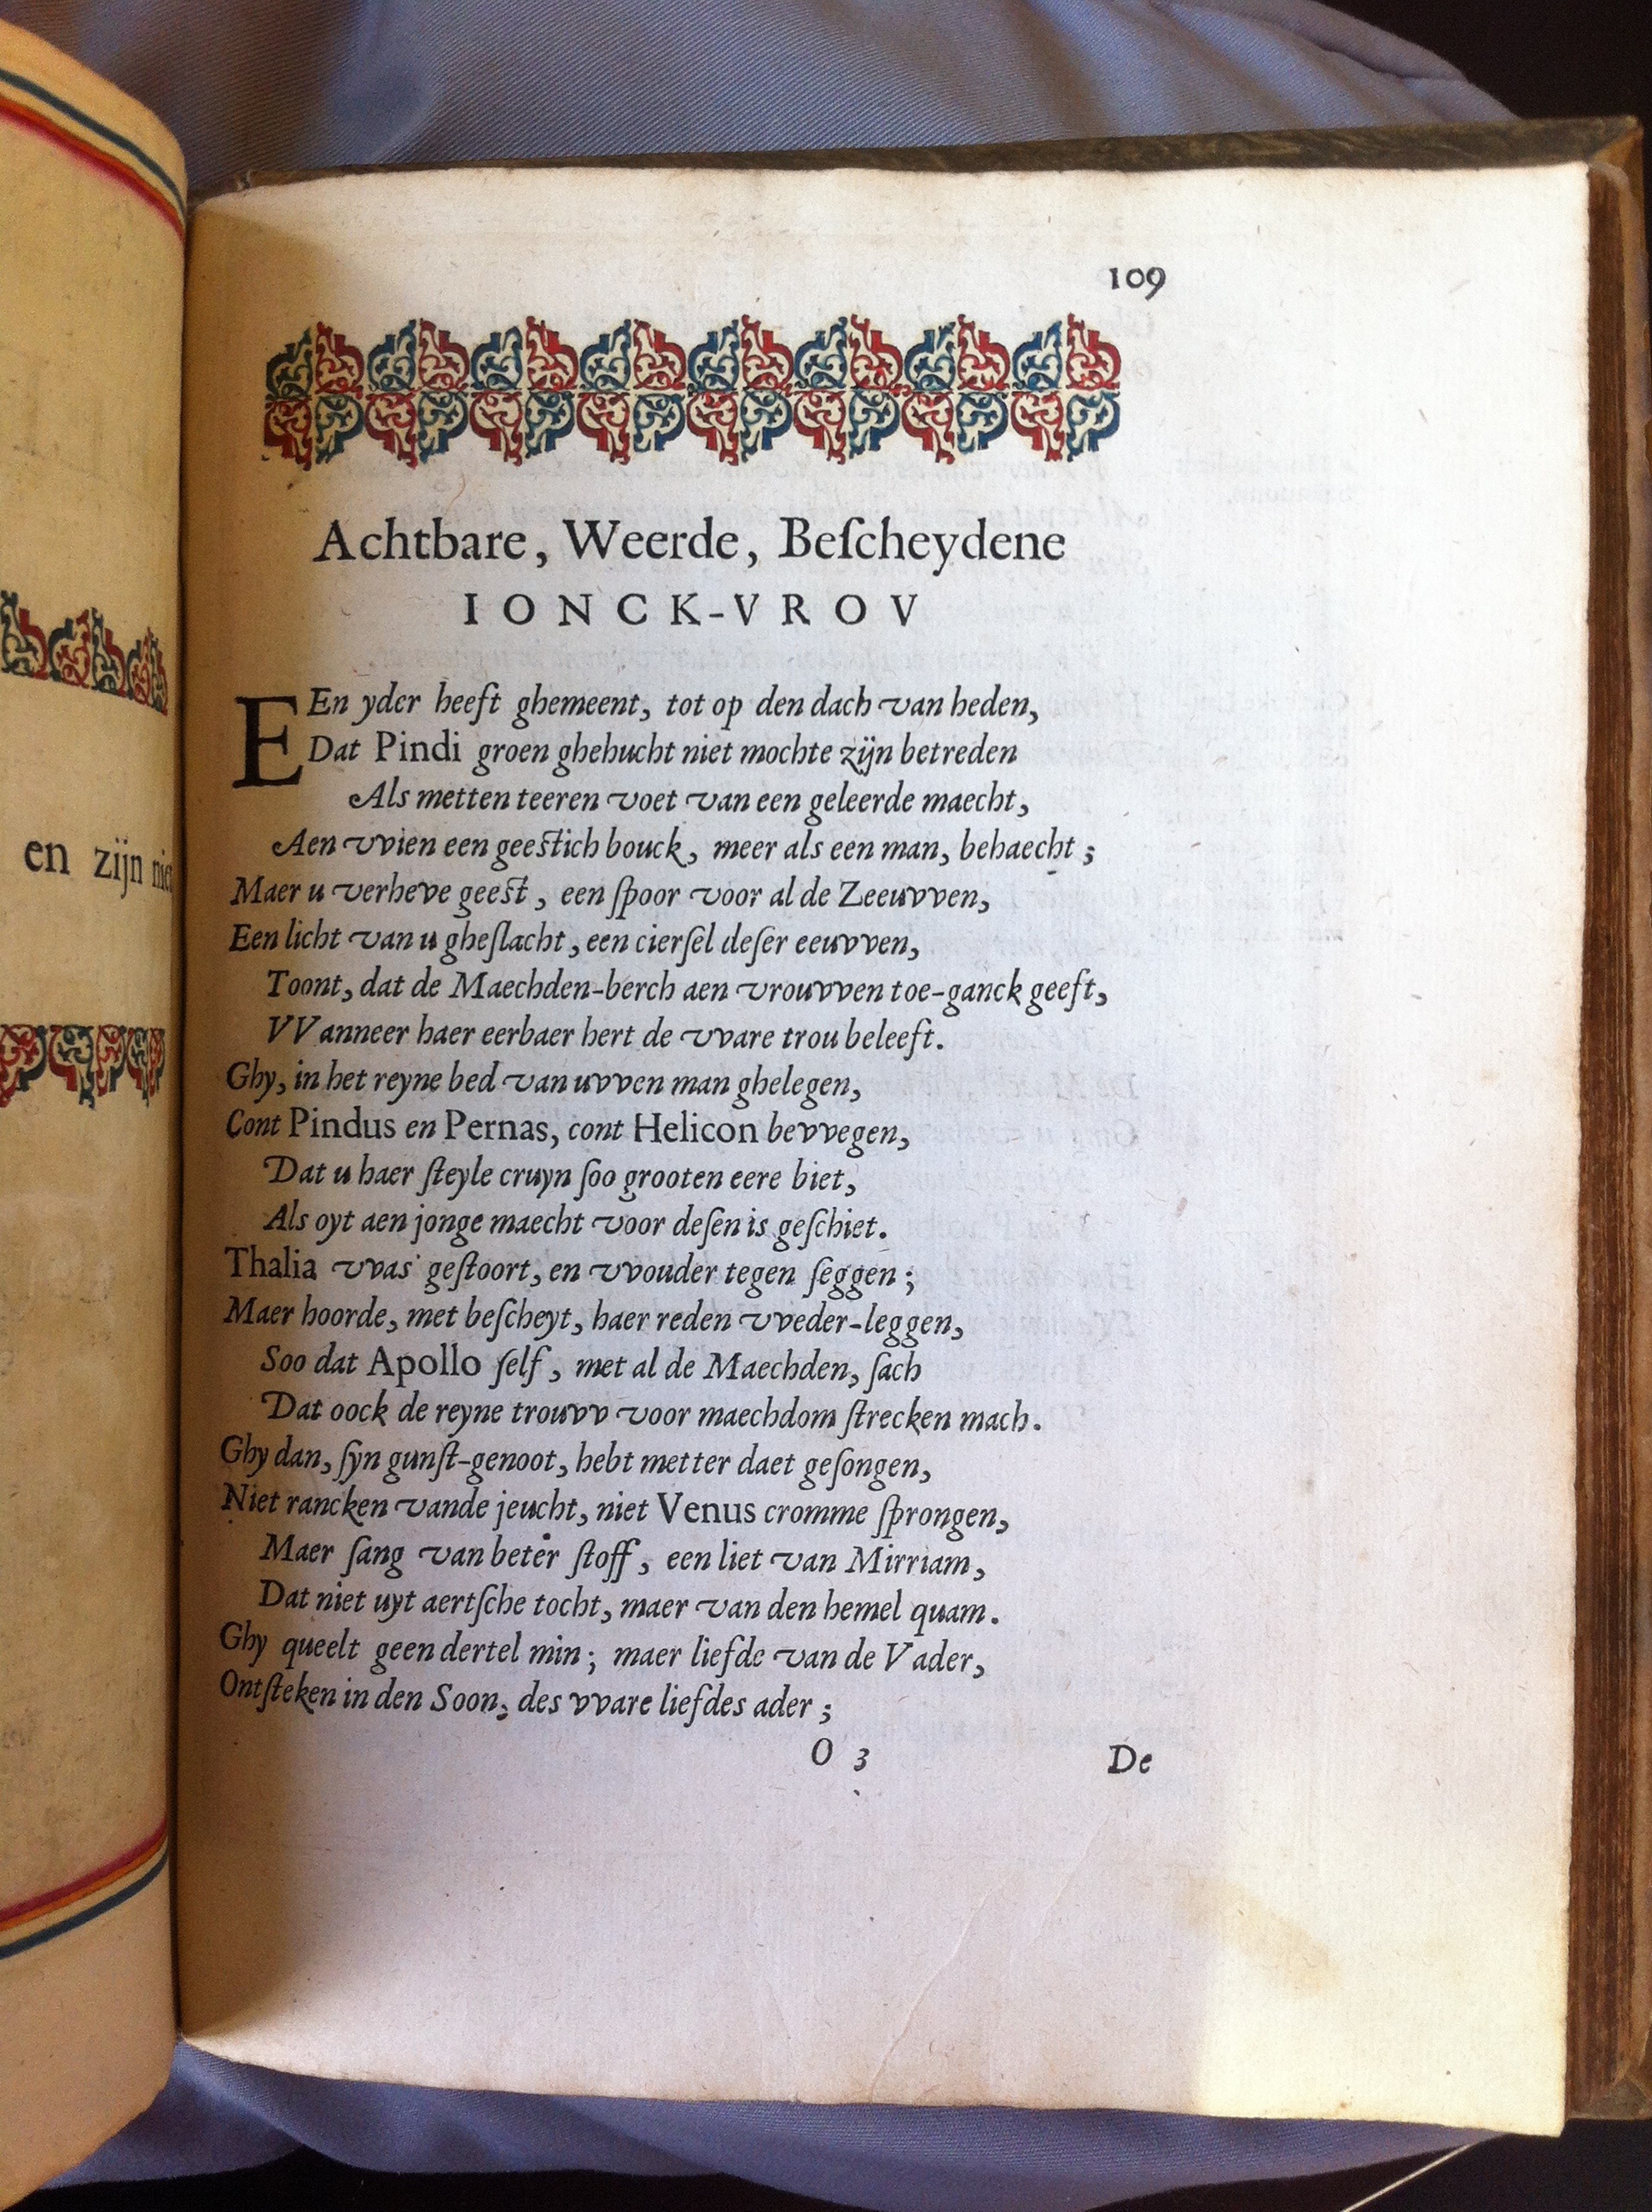 109
Achtbare, Weerde, Beſcheydene
IONCK-VROV
EEn yder heeft ghemeent, tot op den dach van heden,
Dat Pindi groen ghehucht niet mochte zijn betreden
Als metten teeren voet van een geleerde maecht,
Aen vvien een geestich bouck, meer als een man, behaecht;
Maer u verheve geest, een ſpoor voor al de Zeeuvven,
Een licht van u gheſlacht, een cierſel deſer eeuvven,
Toont, dat de Maechden-berch aen vrouvven toe-ganck geeft,
VVanneer haer eerbaer hert de vvare trou beleeft.
Ghy, in het reyne bed van uvven man ghelegen,
Cont Pindus en Pernas, cont Helicon bevvegen,
Dat u haer ſteyle cruyn ſoo grooten eere biet,
Als oyt aen jonge maecht voor deſen is geſchiet.
Thalia vvas geſtoort, en vvouder tegen ſeggen;
Maer hoorde, met beſcheyt, haer reden vveder-leggen,
Soo dat Apollo ſelf, met al de Maechden, ſach
Dat oock de reyne trouvv voor maechdom ſtrecken mach.
Ghy dan, ſyn gunſt-genoot, hebt metter daet geſongen,
Niet rancken vande jeucht, niet Venus cromme ſprongen,
Maer ſang van beter ſtoff, een liet van Mirriam,
Dat niet uyt aertſche tocht, maer van den hemel quam.
Ghy queelt geen dertel min; maer liefde van de Vader,
Ontſteken in den Soon, des vvare liefdes ader;
O 3 De
en zijn